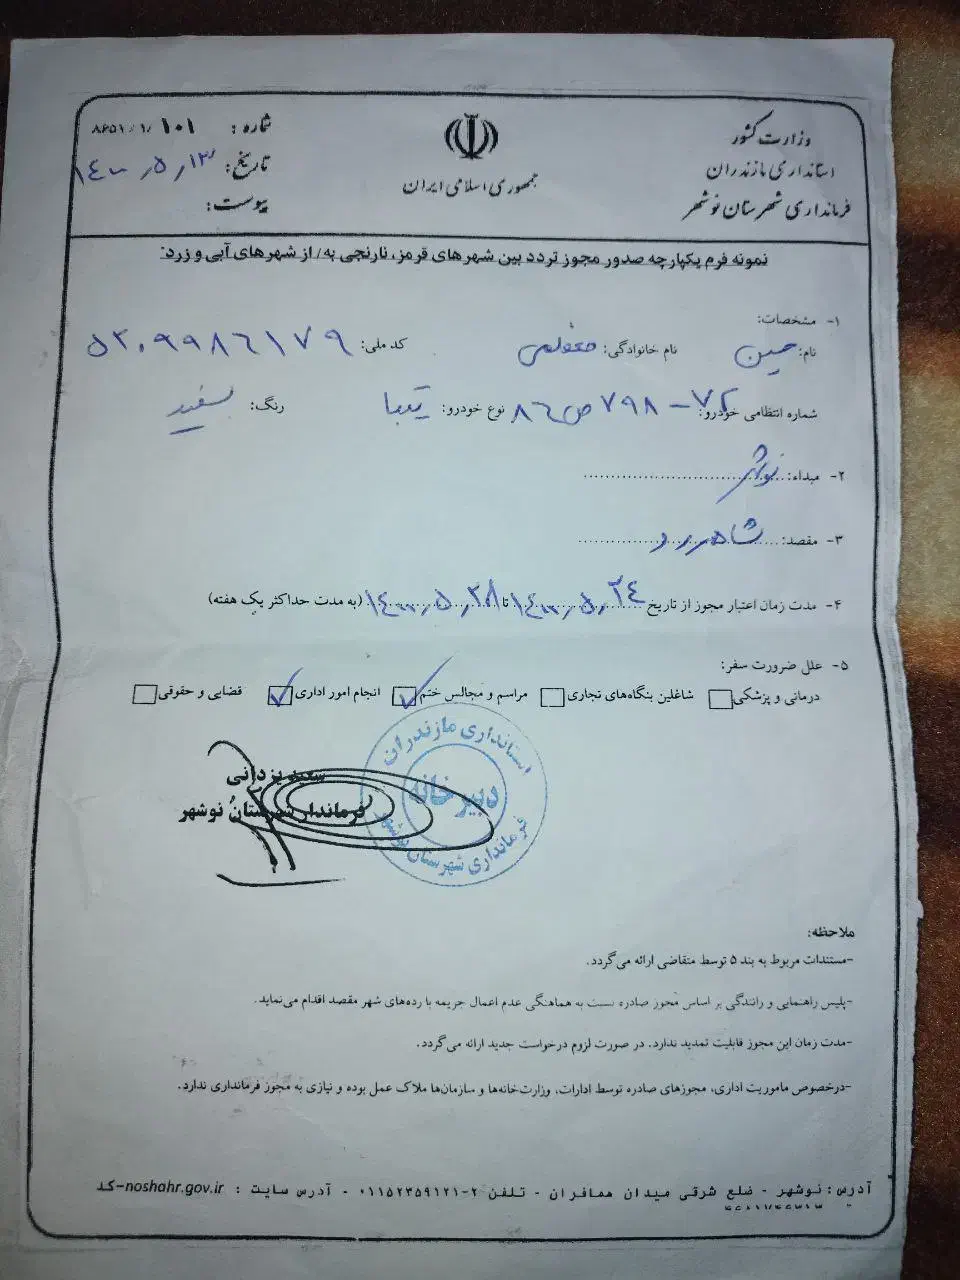 وزارت کشور
استانداری مازندران
فرمانداری شهرستان نوشهر
جمهوری اسلامی ایران
شماره: ۸۶۵۱/۱/۱۰۱
تاریخ: ۱۴۰۰/۵/۱۳
پیوست:
نمونه فرم یکپارچه صدور مجوز تردد بین شهرهای قرمز، نارنجی به/ از شهرهای آبی و زرد:
۱- مشخصات:
نام: حسین نام خانوادگی: کد ملی: ۵۲۰۹۹۸۶۱۷۹
شماره انتظامی خودرو: ۷۲-۷۹۸ص۸۶ نوع خودرو: تیبا رنگ: سفید
۲- مبداء: نوشهر
۳- مقصد: شاهرود
۴- مدت زمان اعتبار مجوز از تاریخ ۱۴۰۰/۵/۲۴ تا ۱۴۰۰/۵/۲۸ (به مدت حداکثر یک هفته)
۵- علل ضرورت سفر:
درمانی و پزشکی شاغلین بنگاه‌های تجاری مراسم و مجالس ختم انجام امور اداری قضایی و حقوقی
استانداری مازندران
دبیرخانه
فرمانداری شهرستان نوشهر
سعید یزدانی
فرماندار شهرستان نوشهر
ملاحظه:
-مستندات مربوط به بند ۵ توسط متقاضی ارائه می‌گردد.
-پلیس راهنمایی و رانندگی بر اساس مجوز صادره نسبت به هماهنگی عدم اعمال جریمه با رده‌های شهر مقصد اقدام می‌نماید.
-مدت زمان این مجوز قابلیت تمدید ندارد. در صورت لزوم درخواست جدید ارائه می‌گردد.
-درخصوص ماموریت اداری، مجوزهای صادره توسط ادارات، وزارت‌خانه‌ها و سازمان‌ها ملاک عمل بوده و نیازی به مجوز فرمانداری ندارد.
آدرس: نوشهر - ضلع شرقی میدان همافران - تلفن ۲-۰۱۱۵۲۳۵۹۱۲۱ - آدرس سایت : noshahr.gov.ir-کد